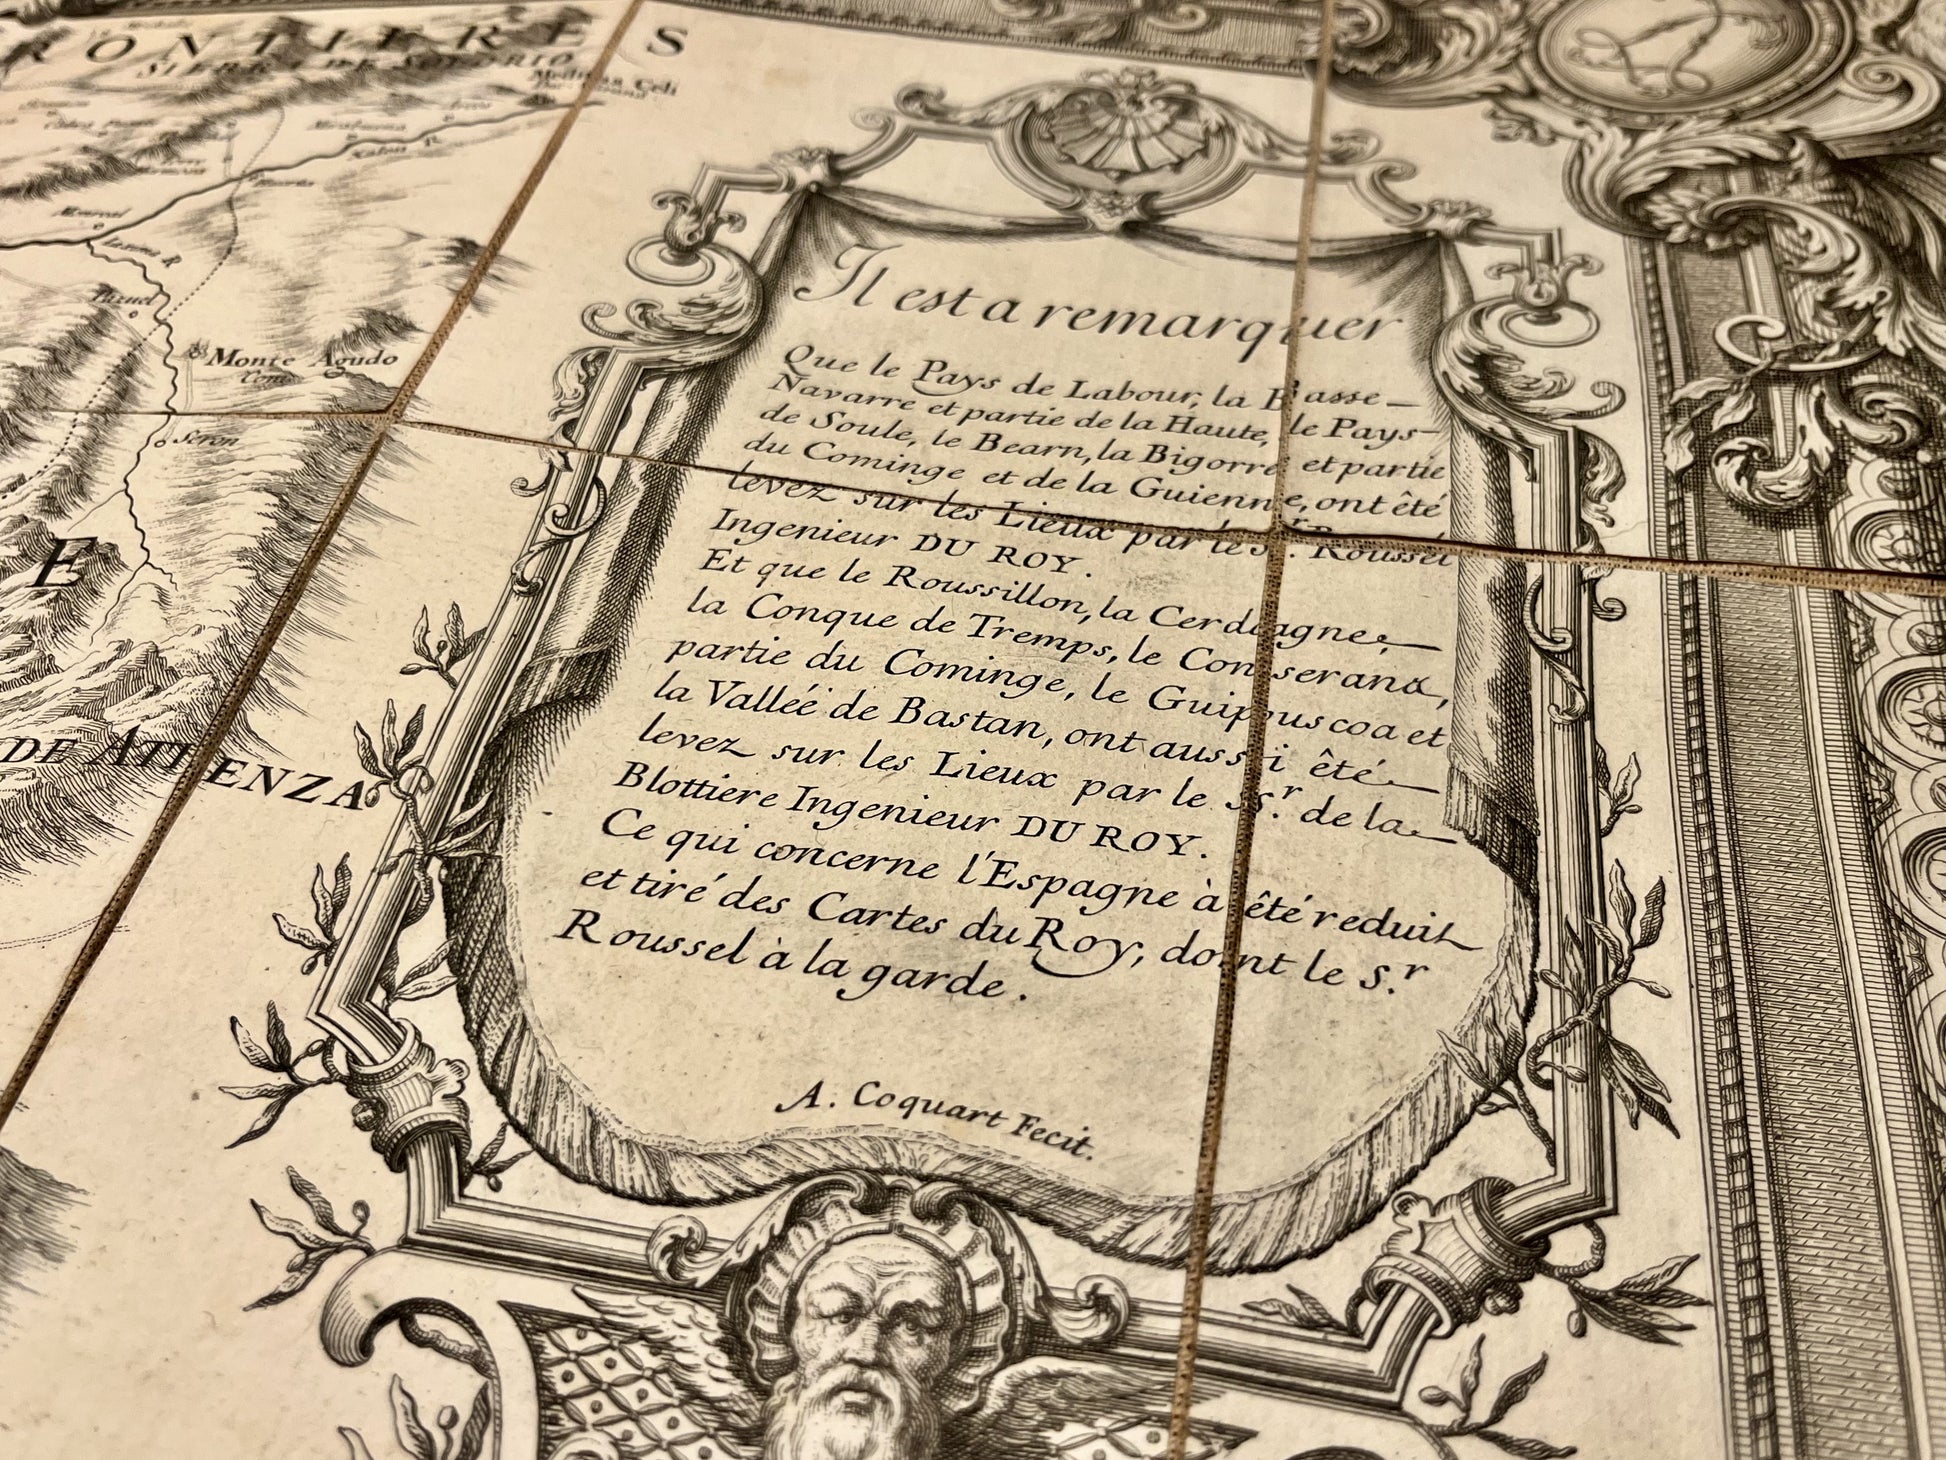 FRONTIERES
SIERRA DE SOLORIO
Medina Celi
Xalon R.
Monreal
Monte Agudo
Com
Seron
E
DE ATIENZA
Il est a remarquer
Que le Pays de Labour, la Basse
Navarre et partie de la Haute, le Pays
de Soule, le Bearn, la Bigorre et partie
du Cominge et de la Guienne, ont êté
levez sur les Lieux par le Sr. Roussel
Ingenieur DU ROY.
Et que le Roussillon, la Cerdagne,
la Conque de Tremps, le Conserans,
partie du Cominge, le Guipuscoa et
la Valléé de Bastan, ont aussi êté
levez sur les Lieux par le Sr. de la
Blottiere Ingenieur DU ROY.
Ce qui concerne l'Espagne à êté reduit
et tiré des Cartes du Roy, dont le Sr.
Roussel à la garde.
A. Coquart Fecit.